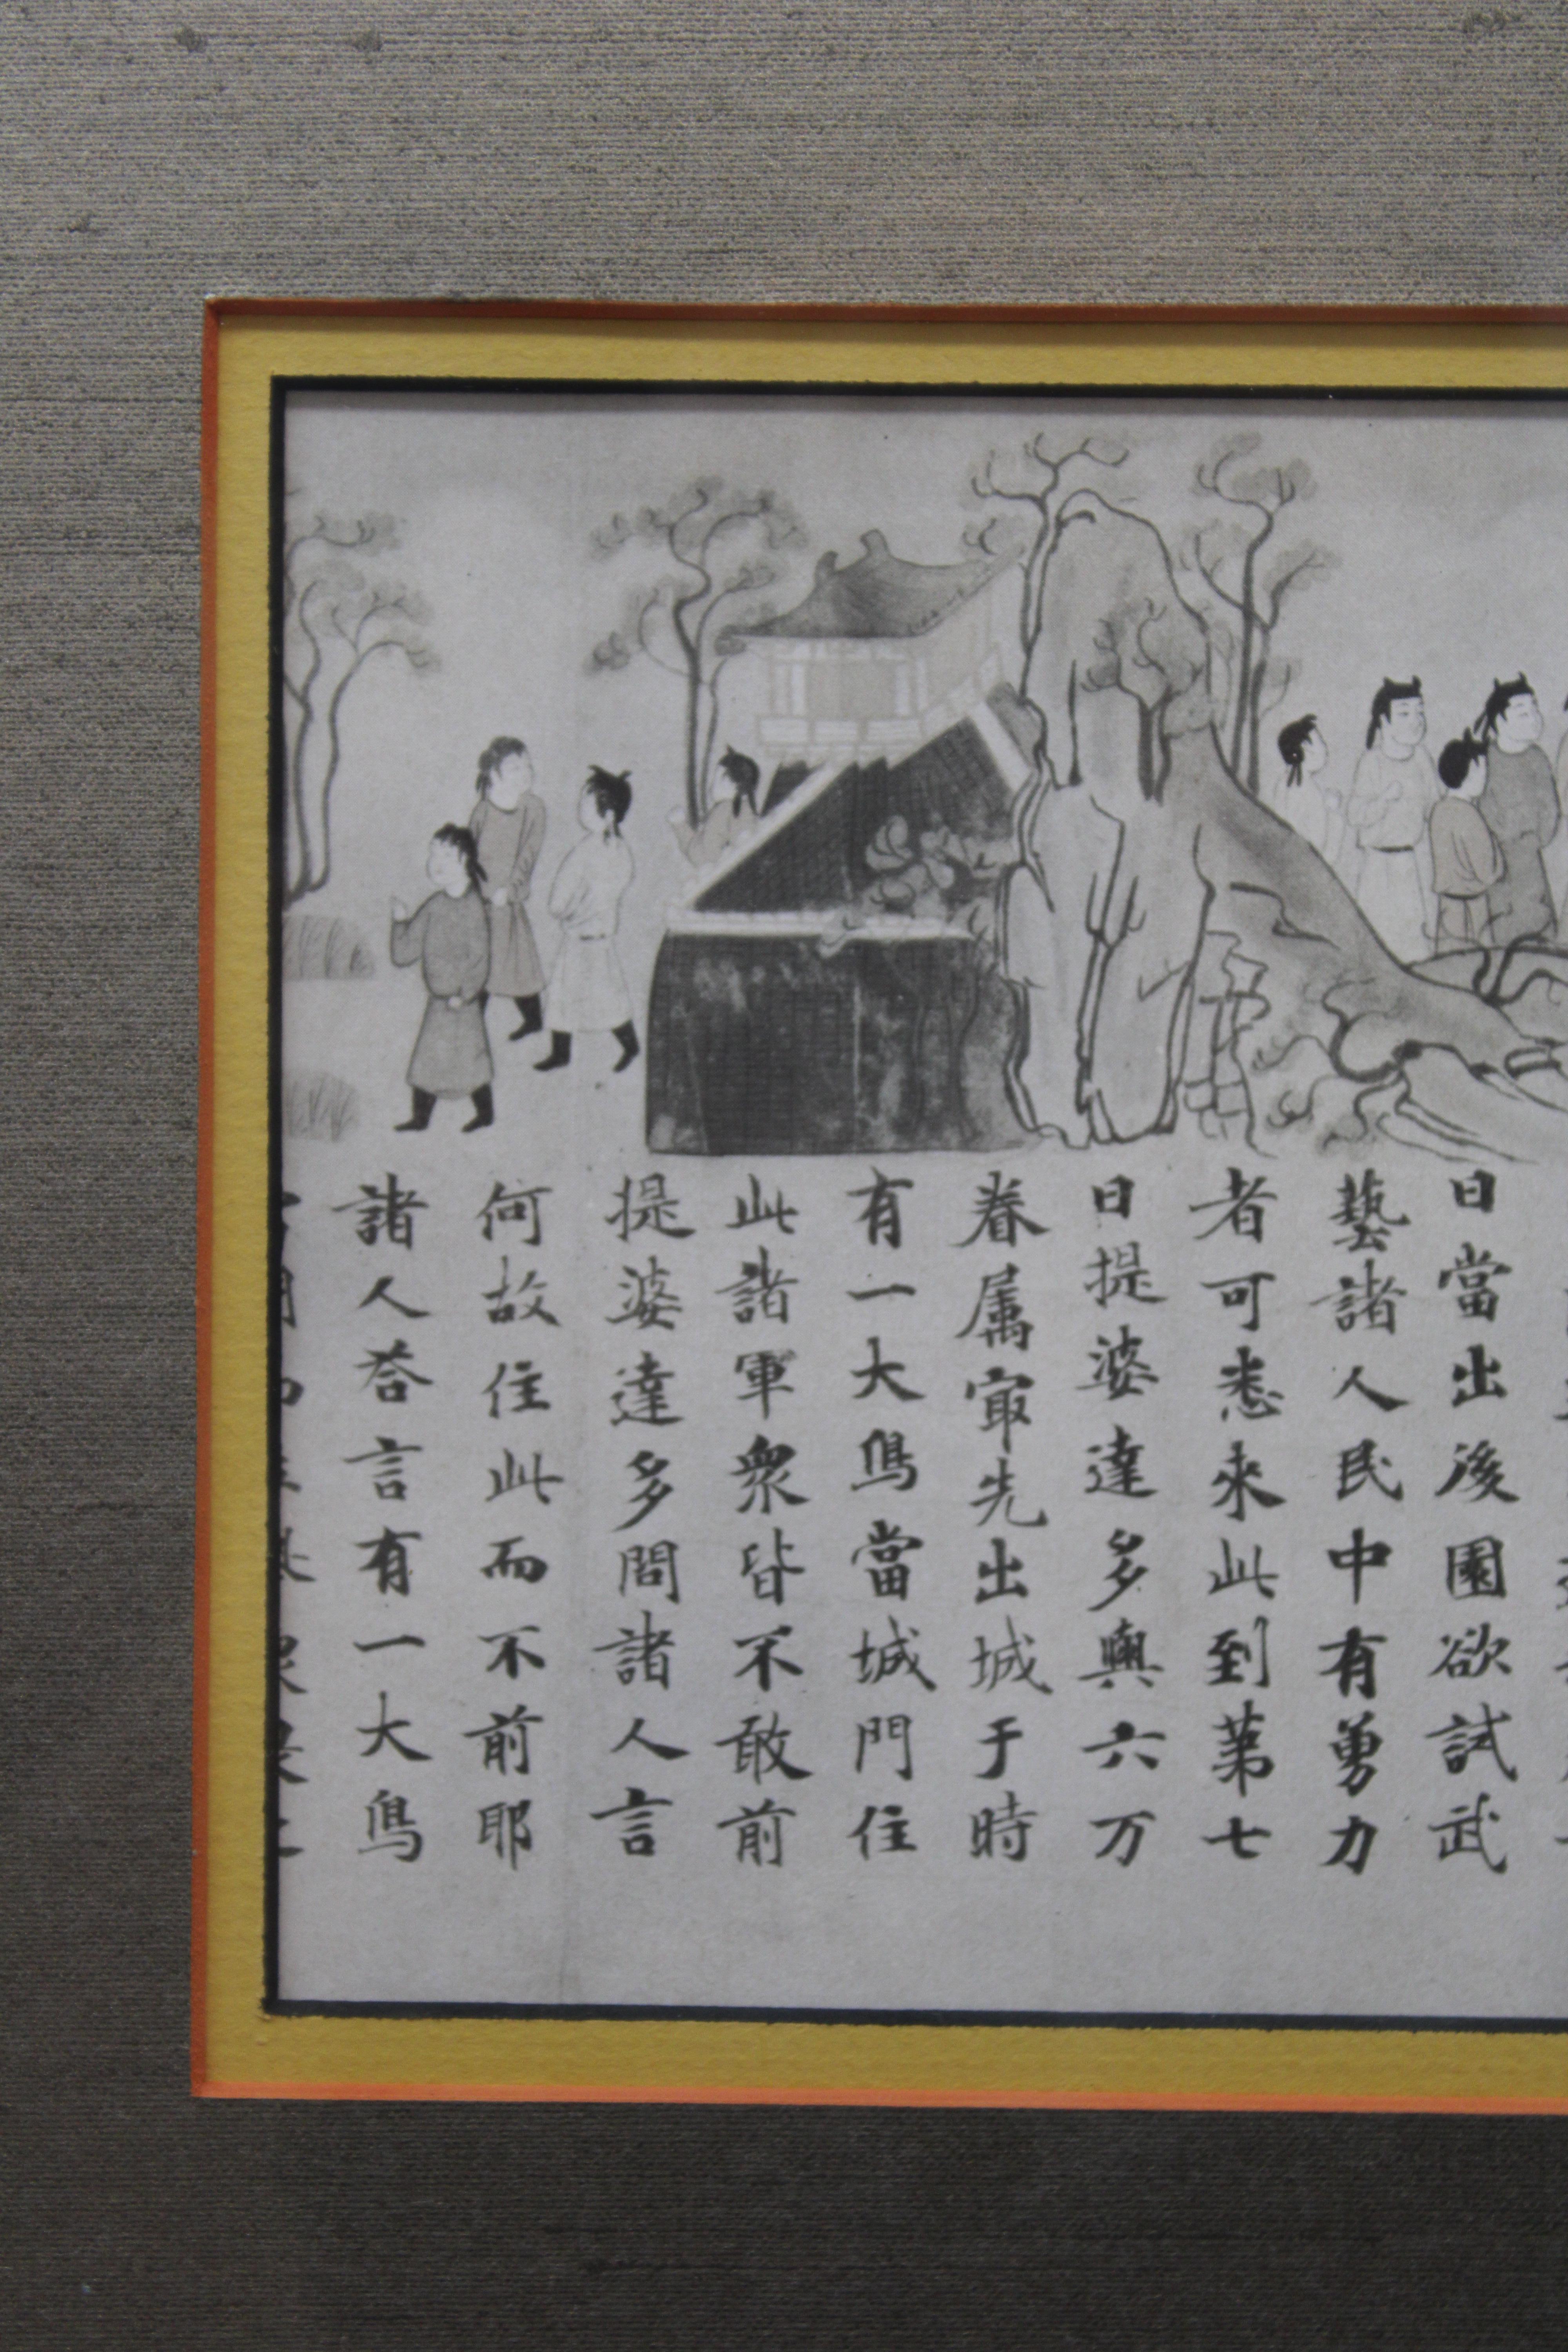 日當出後園欲試武
藝諸人民中有勇力
者可悉来此到第七
日提婆達多與六万
眷属㝡先出城于時
有一大象當城門住
此諸軍衆皆不敢前
提婆達多問諸人言
何故住此而不前耶
諸人荅言有一大象